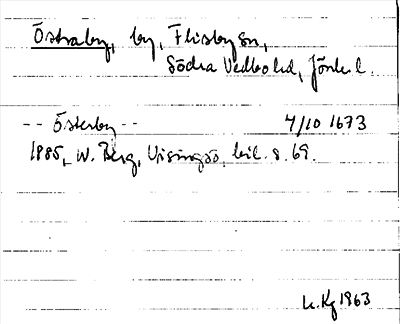 Östraby, by, Flisby sn,
Södra Vedbo hd, Jönk. l.
-- Österby -- 4/10 1673
1885, W. Berg, Visingsö, bil. s. 69.
1963